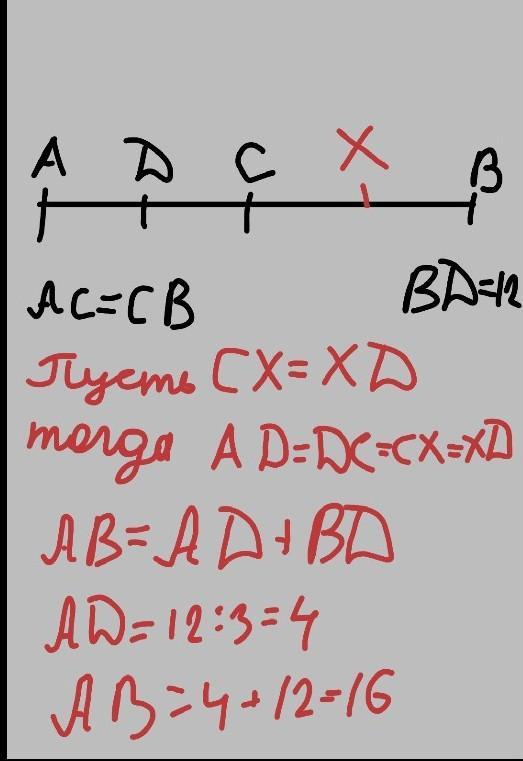 A D C X B
AC=CB BD=12
Пусть CX=XD
тогда AD=DC=CX=XD
AB=AD+BD
AD=12:3=4
AB=4+12=16